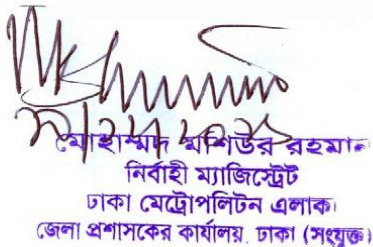 মোহাম্মদ মশিউর রহমান
নির্বাহী ম্যাজিস্ট্রেট
ঢাকা মেট্রোপলিটন এলাকা।
জেলা প্রশাসকের কার্যালয়, ঢাকা (সংযুক্ত)